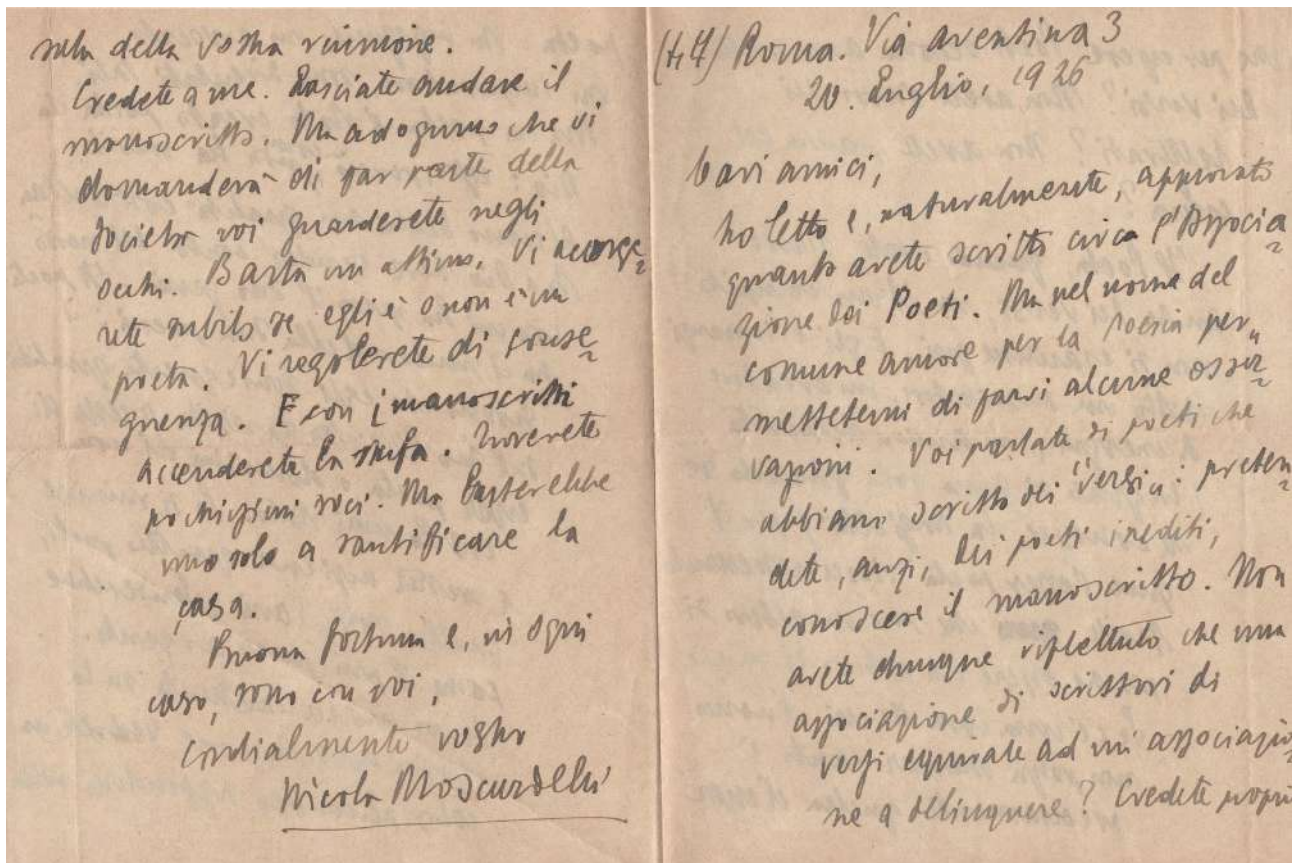 sala della vostra riunione.
Credete a me. Lasciate andare il
manoscritto. Ma ad ognuno che vi
domanderà di far parte della
società voi guarderete negli
occhi. Basta un attimo. Vi accorge=
rete subito se egli è o non è un
poeta. Vi regolerete di conse=
guenza. E con i manoscritti
accenderete la stufa. Troverete
pochissimi soci. Ma basterebbe
uno solo a santificare la
casa.
Buona fortuna e, in ogni
caso, sono con voi,
cordialmente vostro
Nicola Moscardelli
(H4) Roma. Via Aventina 3
20. Luglio, 1926
Cari amici,
ho letto e, naturalmente, approvato
quanto avete scritto circa l'Associa=
zione dei Poeti. Ma nel nome del
comune amore per la poesia per=
mettetemi di farvi alcune osser=
vazioni. Voi parlate di poeti che
abbiano scritto dei versi: preten=
dete, anzi, dei poeti inediti,
conoscere il manoscritto. Non
avete dunque riflettuto che una
associazione di scrittori di
versi equivale ad un'associazio=
ne a delinquere? Credete proprio